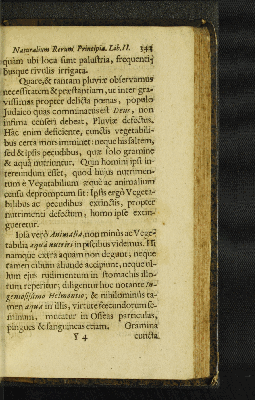 Naturalium Rerum Principia. Lib. II. 343
quàm ubi loca sunt palustria, frequenti-
busque rivulis irrigata.
Quare, & tantam pluviæ observamus
necessitatem & præstantiam, ut inter gra-
vissimas propter delicta pœnas, populo
Judaico quas comminatus est Deus, non
infima censeri debeat, Pluviæ defectus.
Hâc enim deficiente, cunctis vegetabili-
bus certa mors imminet: neque his saltem,
sed & ipsis pecudibus, quæ solo gramine
& aquâ nutriuntur. Quin homini ipsi in-
tereundum esset, quod hujus nutrimen-
tum è Vegetabilium æquè ac animalium
censu depromptum sit: Ipsis ergò Vegeta-
bilibus ac pecudibus extinctis, propter
nutrimenti defectum, homo ipse extin-
gueretur.
Ipsa verò Animalia, non minùs ac Vege-
tabilia aquâ nutriri in piscibus videmus. Hi
namque extra aquam non degunt, neque
tamen cibum aliunde accipiunt, neque ul-
lum ejus rudimentum in stomachis illo-
rum reperitur, diligenter hoc notante In-
geniosissimo Helmontio; & nihilominus ta-
men aqua in illis, virtute fœcundorum se-
minum, mutatur in Osseas particulas,
pingues & sanguineas etiam. Gramina
Y 4 cuncta